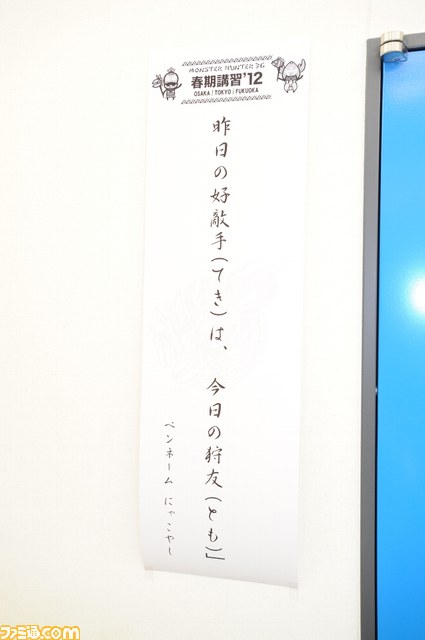 MONSTER HUNTER 3G
春期講習'12
OSAKA | TOKYO | FUKUOKA
昨日の好敵手(てき)は、今日の狩友(とも)」
ペンネーム にゃこやし
ファミ通.com